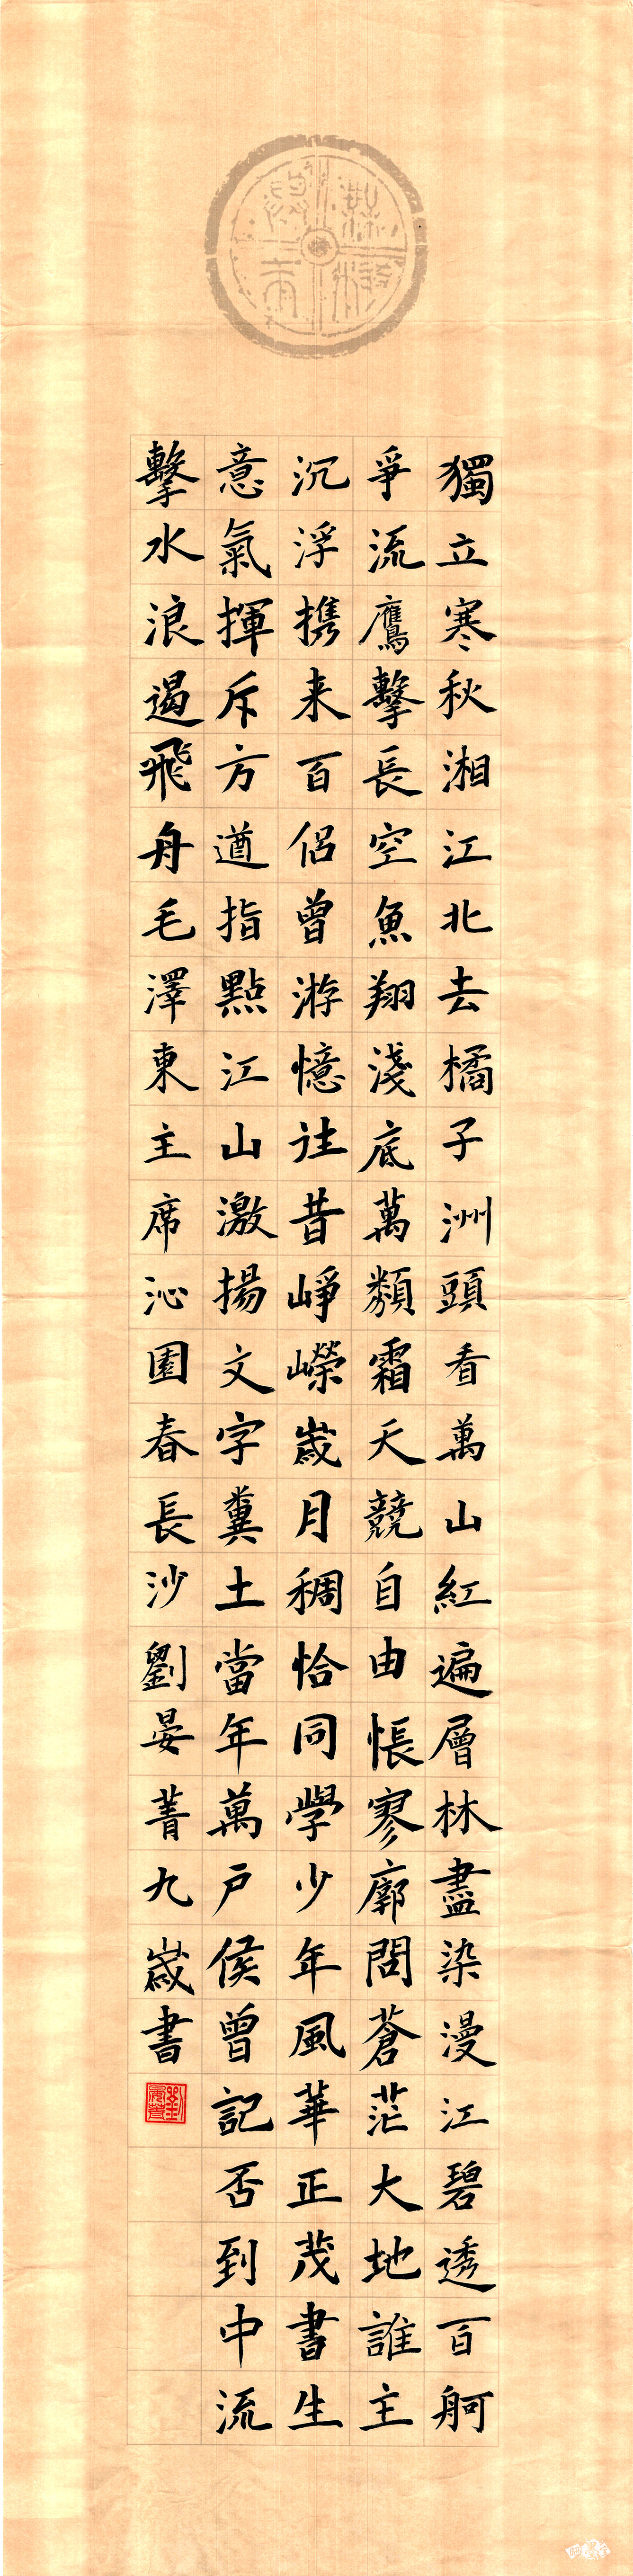 獨立寒秋湘江北去橘子洲頭看萬山紅遍層林盡染漫江碧透百舸
爭流鷹擊長空魚翔淺底萬類霜天競自由悵寥廓問蒼茫大地誰主
沉浮攜来百侶曾游憶往昔崢嶸崴月稠恰同學少年風華正茂書生
意氣揮斥方遒指點江山激揚文字糞土當年萬戶侯曾記否到中流
擊水浪遏飛舟毛澤東主席沁園春長沙劉晏菁九崴書